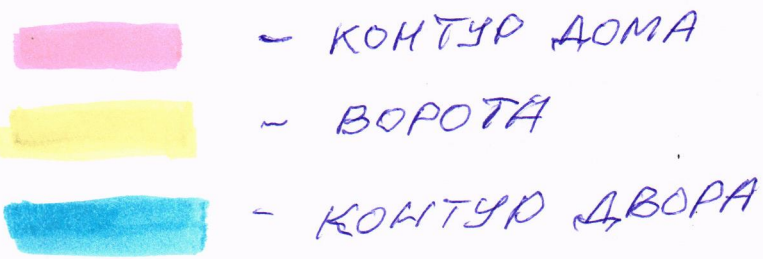 - КОНТУР ДОМА
~ ВОРОТА
- КОНТУР ДВОРА